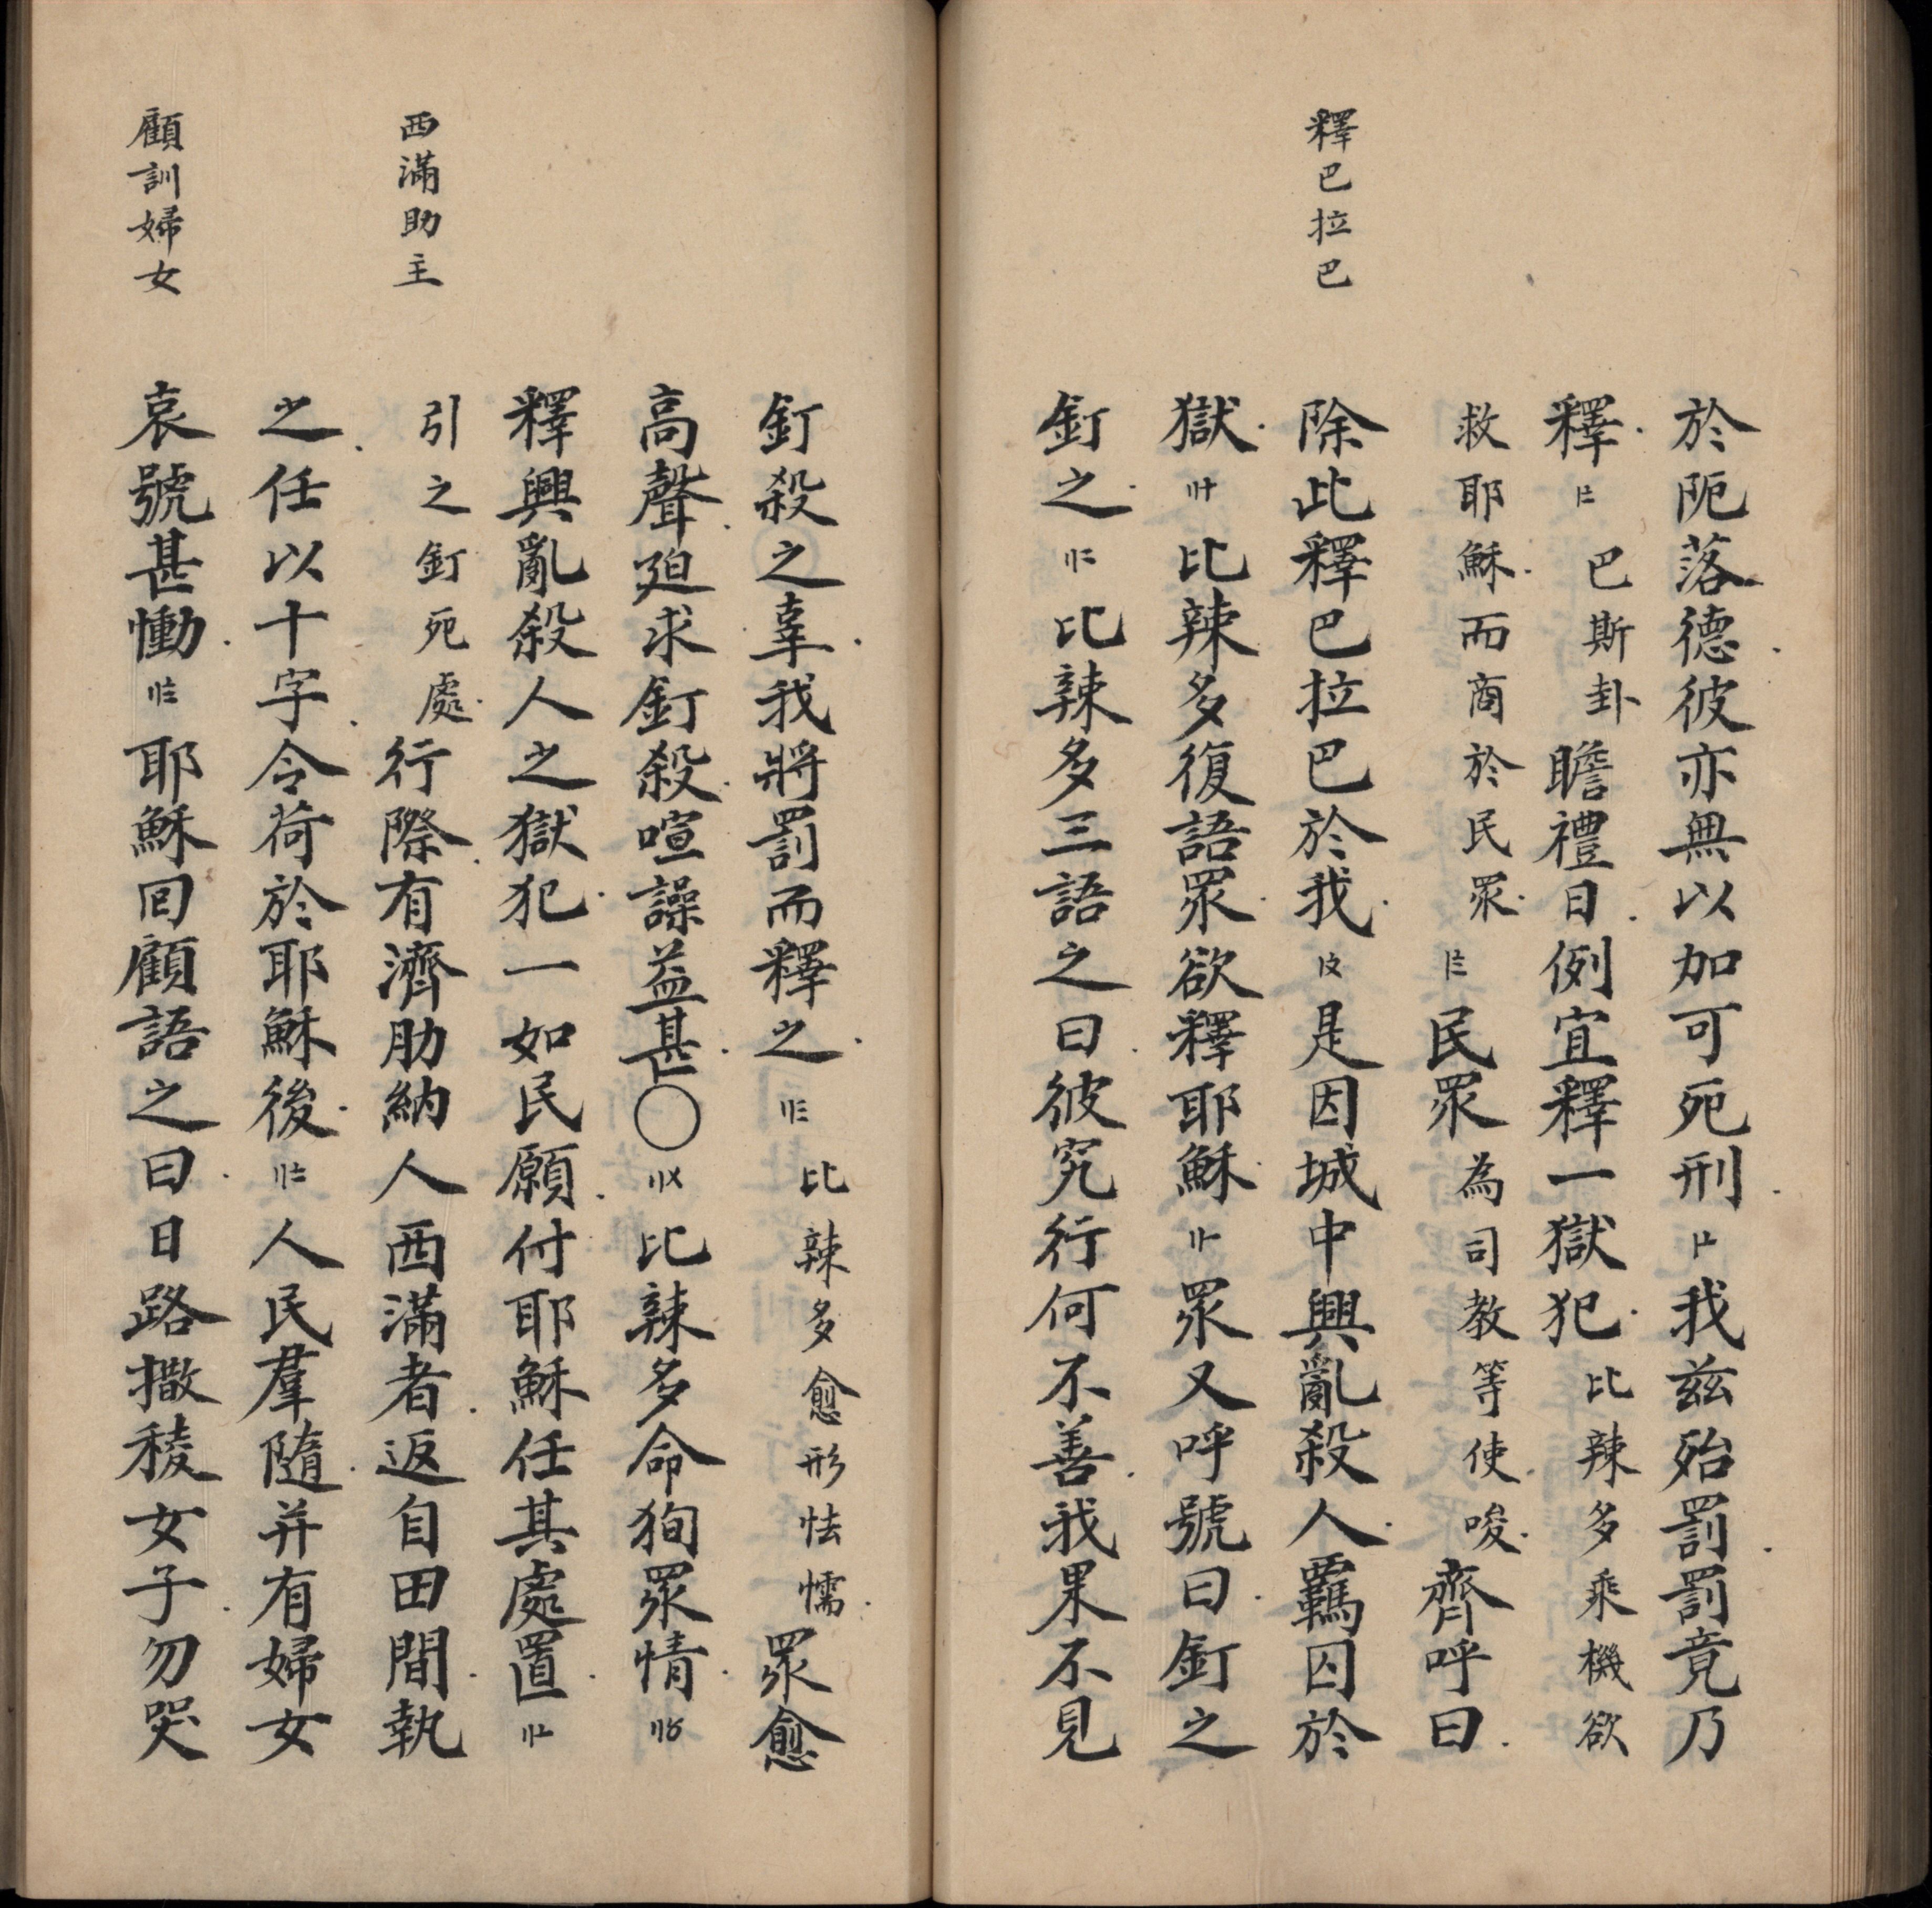 釋巴拉巴
於阨落德彼亦無以加可死刑〡〦我兹殆罰罰竟乃
釋〡〧巴斯卦瞻禮日例宜釋一獄犯比辣多乘機欲
救耶穌而商於民眾〡〨民眾為司教等使唆齊呼曰
除此釋巴拉巴於我〡〩是因城中興亂殺人羈囚於
獄〢十比辣多復語眾欲釋耶穌〢〡眾又呼號曰釘之
釘之〢〢比辣多三語之曰彼究行何不善我果不見
西滿助主
顧訓婦女
釘殺之辜我將罰而釋之〢〣比辣多愈形怯懦眾愈
高聲廹求釘殺喧譟益甚〇〢〤比辣多命狥眾情〢〥
釋興亂殺人之獄犯一如民願付耶穌任其處置〢〦
引之釘死處行際有濟肋納人西滿者返自田間執
之任以十字令荷於耶穌後〢〧人民羣隨并有婦女
哀號甚慟〢〨耶穌囘顧語之曰日路撒稜女子勿哭